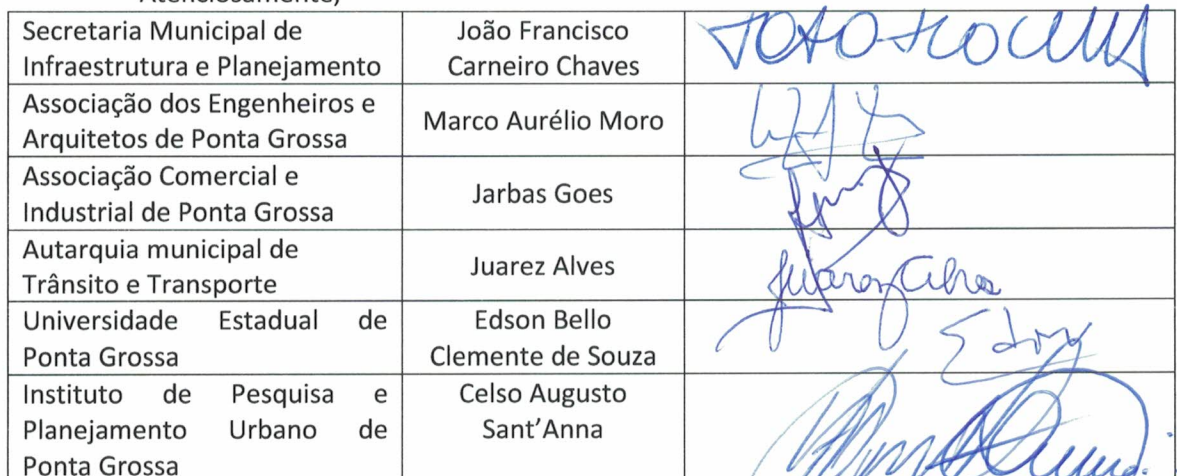 Atenciosamente,
Secretaria Municipal de
Infraestrutura e Planejamento
João Francisco
Carneiro Chaves
Associação dos Engenheiros e
Arquitetos de Ponta Grossa
Marco Aurélio Moro
Associação Comercial e
Industrial de Ponta Grossa
Jarbas Goes
Autarquia municipal de
Trânsito e Transporte
Juarez Alves
Juarez Alves
Universidade Estadual de
Ponta Grossa
Edson Bello
Clemente de Souza
Edson
Instituto de Pesquisa e
Planejamento Urbano de
Ponta Grossa
Celso Augusto
Sant’Anna